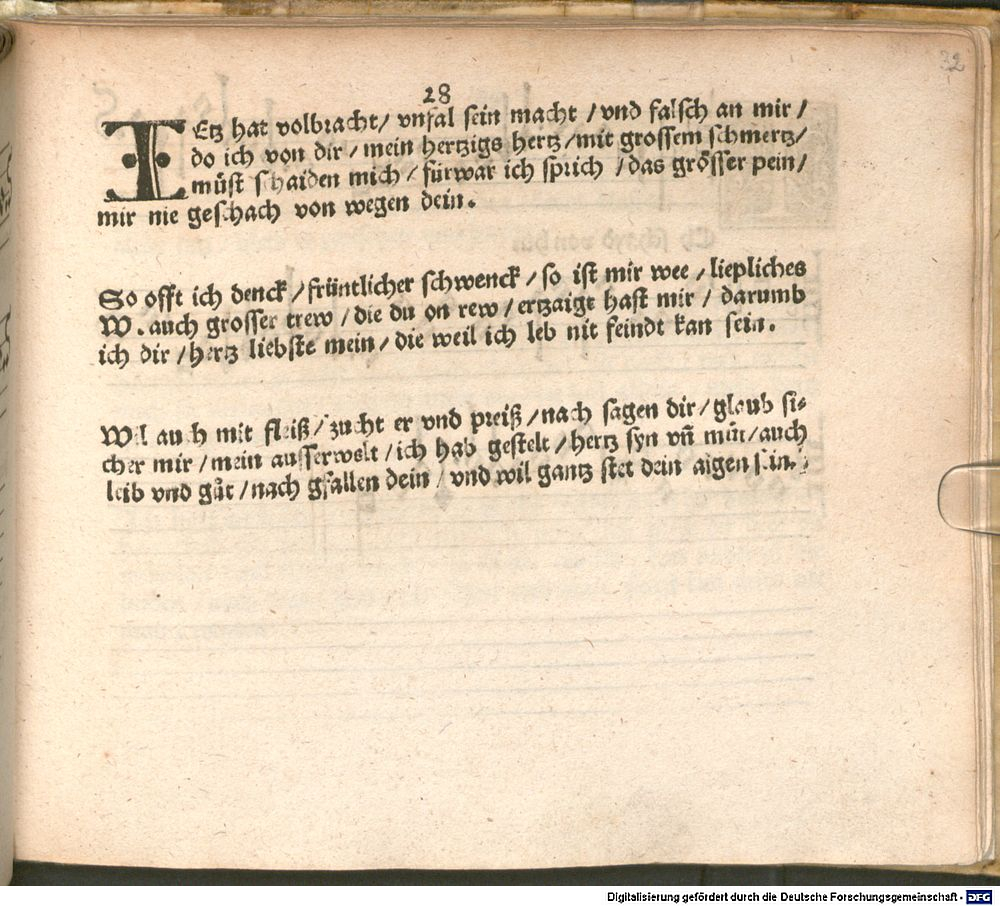 32
28
IEtz hat volbracht/ vnfal sein macht /vnd falsch an mir/
do ich von dir /mein hertzigs hertz/mit grossem schmertz/
müst schaiden mich / fürwar ich sprich /das grösser pein/
mir nie geschach von wegen dein.
So offt ich denck /früntlicher schwenck /so ist mir wee /liepliches
W. auch grosser trew /die du on rew /ertzaigt hast mir / darumb
ich dir /hertz liebste mein/die weil ich leb nit feindt kan sein.
Wil auch mit fleiß/zucht er vnd preiß /nach sagen dir/glaub si-
cher mir /mein ausserwelt /ich hab gestelt /hertz syn vñ můt/auch
leib vnd gůt /nach gfallen dein /vnd wil gantz stet dein aigen sein.
Digitalisierung gefördert durch die Deutsche Forschungsgemeinschaft - DFG